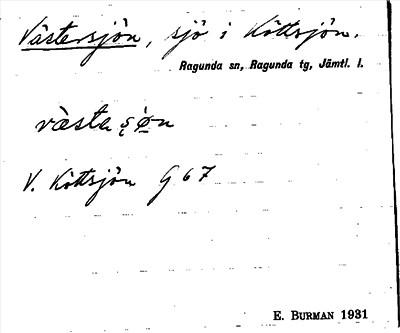 Västersjön, sjö i Köttsjön.
Ragunda sn, Ragunda tg, Jämtl. l.
V. Köttsjön G 67
E. BURMAN 1931